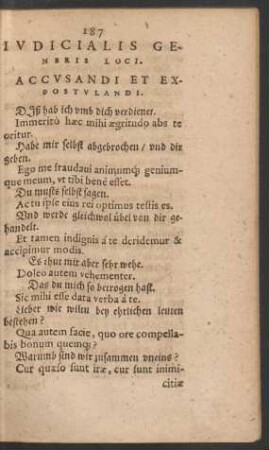 187
IVDICIALIS GE-
NERIS LOCI.
ACCVSANDI ET EX-
POSTVLANDI.
DJß hab ich vmb dich verdienet.
Immeritò hæc mihi ægritudo abs te
oritur.
Habe mir selbst abgebrochen / vnd dir
geben.
Ego me fraudaui animumq́; genium-
que meum, vt tibi benè esset.
Du musts selbst sagen.
Actu ipse eius rei optimus testis es.
Vnd werde gleichwol übel von dir ge-
handelt.
Et tamen indignis à te deridemur &
accipimur modis.
Es thut mir aber sehr wehe.
Doleo autem vehementer.
Das du mich so betrogen hast.
Sic mihi esse data verba à te.
Lieber wie wiltu bey ehrlichen leuten
bestehen?
Qua autem facie, quo ore compella-
bis bonum quemq;?
Warumb sind wir zusammen vneins?
Cur quæso sunt iræ, cur sunt inimi-
citiæ